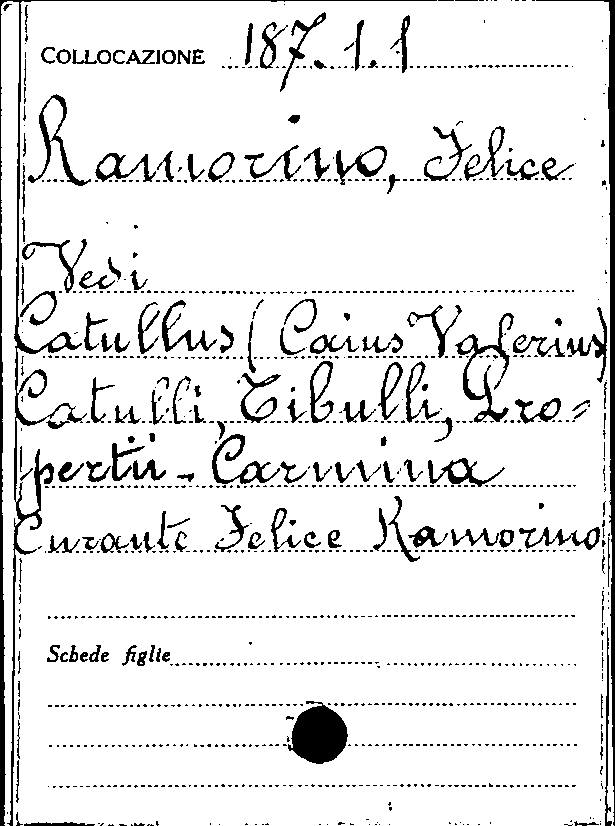 COLLOCAZIONE 187.1.1
Ramorino, Felice
Vedi
Catullus (Caius Valerius)
Catulli, Tibulli, Pro=
pertii - Carmina
Curante Felice Ramorino
Schede figlie